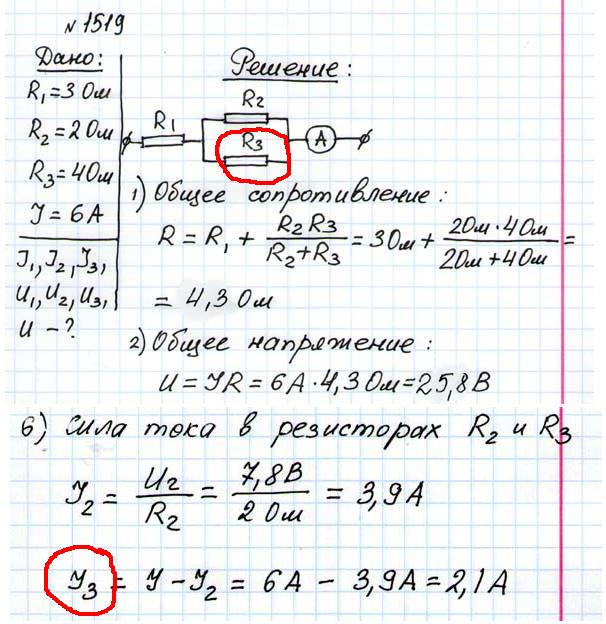 №1519
Дано:
R₁=3 Ом
R₂=2 Ом
R₃=4 Ом
J=6А
J₁, J₂, J₃,
U₁, U₂, U₃,
U – ?
Решение:
R₁
R₂
R₃
A
1) Общее сопротивление:
R = R₁ + R₂ R₃ / R₂+R₃ = 3 Ом + 2 Ом · 4 Ом / 2 Ом + 4 Ом =
= 4,3 Ом
2) Общее напряжение:
U = JR = 6А · 4,3 Ом = 25,8 В
6) Сила тока в резисторах R₂ и R₃
J₂ = U₂ / R₂ = 7,8 В / 2 Ом = 3,9 А
J₃ = J – J₂ = 6А – 3,9А = 2,1 А